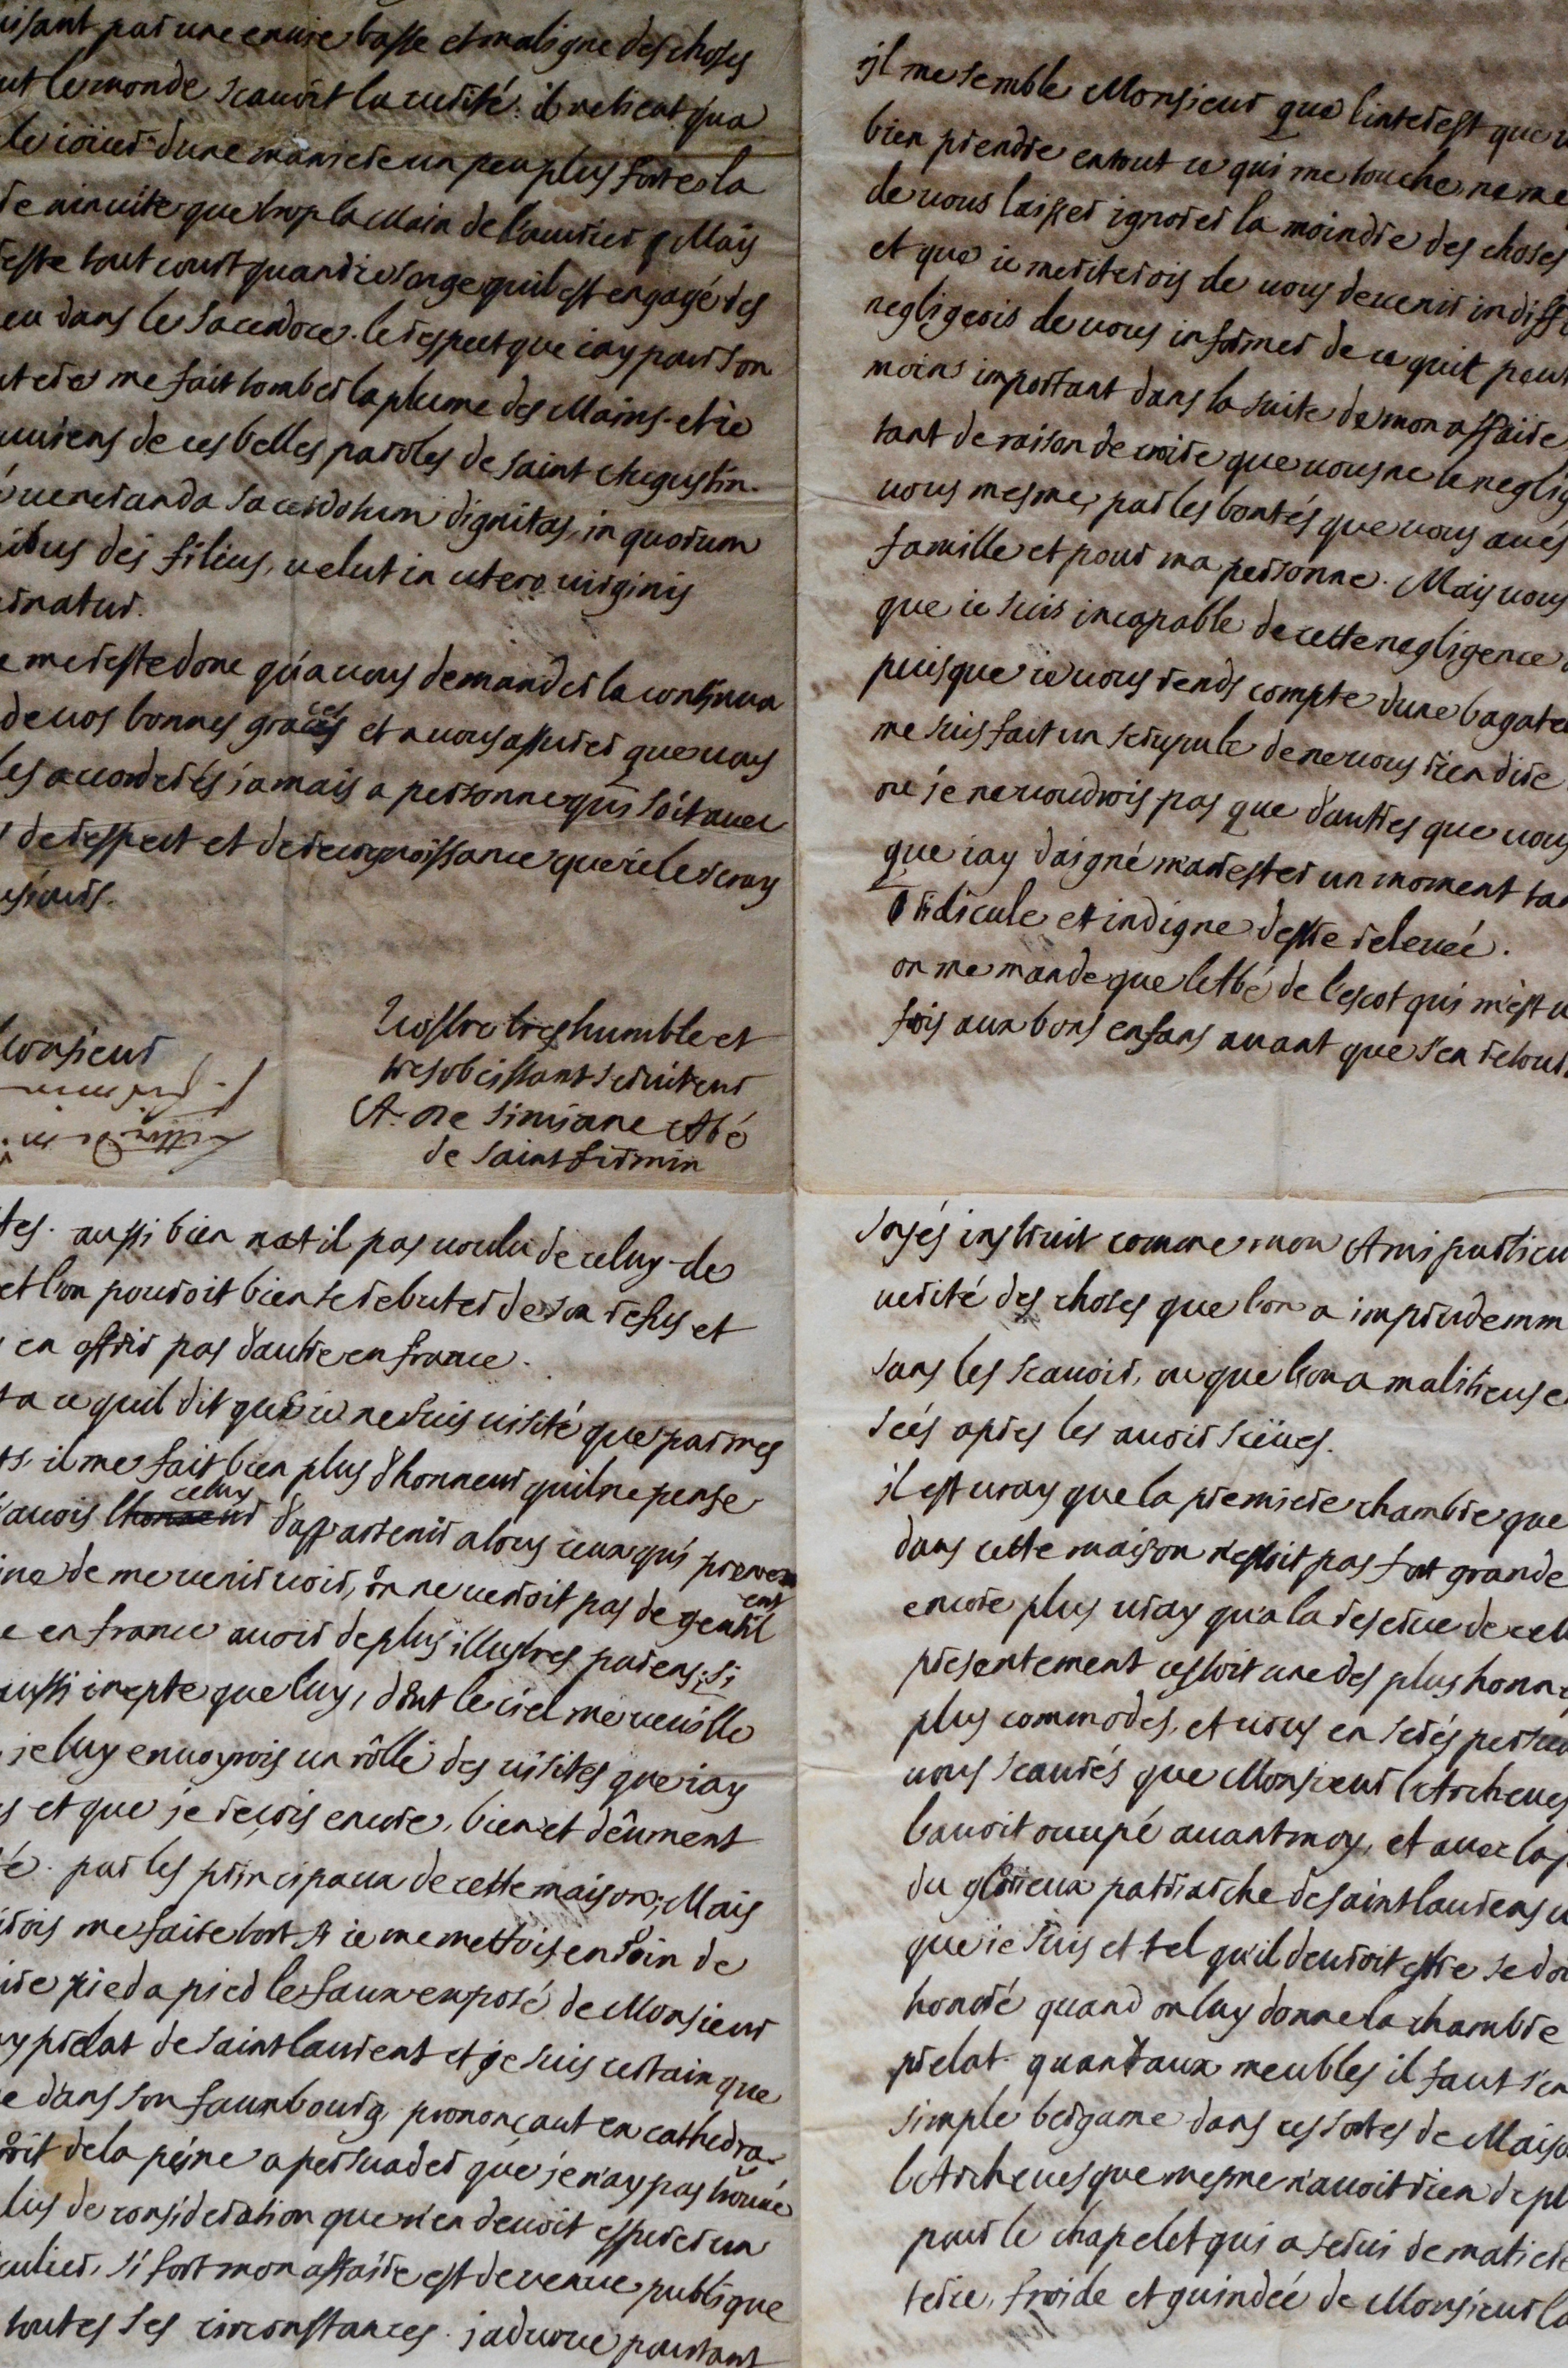 isant par une envie basse et maligne des choses
ut le monde scauoit la uerité. il ne tient qua
le ioüer dune maniere un peu plus forte la
re ninuite que trop la Main de l'ouurier Mais
reste tout court quand ie songe quil est engagé des
eu dans le Sacerdoce. le respect que iay pour son
tere me fait tomber la plume des Mains. et ie
uuiens de ces belles paroles de saint Augustin.
ô ueneranda sacerdotum dignitas, in quorum
ibus dei filius, uelut in utero uirginis
rnatur.
e me reste donc qu'a uous demander la continua
de uos bonnes graces et a uous assurer que uous
les accorderés jamais a personne qui soit auec
de respect et de recognoissance que ie le seray
usiours.
Monsieur
Vostre tres humble et
tres obeissant seruiteur
A. De Simiane Abé
de saint firmin
il me semble Monsieur que l'interest que u
bien prendre en tout ce qui me touche, ne me
de uous laisser ignorer la moindre des choses
et que ie meriterois de uous deuenir indiffe
negligeois de uous informer de ce quil peut
moins important dans la suite de mon affaire,
tant de raison de croire que uous ne le neglig
uous mesme, par les bontés que uous aues
famille et pour ma personne. Mais uous
que ie suis incapable de cette negligence
puisque ie uous rends compte dune bagate
me suis fait un scrupule de ne uous rien dire
ne je ne uoudrois pas que d'autres que uous
que iay daigné m'arester un moment ta
ridicule et indigne d'estre releueé.
on me mande que l'Abé de l'escot qui m'est u
fois aux bons enfans auant que s'en retour
tes. aussi bien nat il pas uoulu de celuy de
et l'on pouroit bien se rebuter de son refus et
en offrir pas d'autre en france.
ta ce quil dit que ie ne suis uisité que par mes
ts, il me fait bien plus d'honneur quil ne pense
j'auois celuy d'appartenir a tous ceux qui prenent
ine de me uenir uoir, on ne uerroit pas de gentil
e en france auoir de plus illustres parens; si
aussi inepte que luy, dont le ciel me ueuille
je luy enuoyrois un rôlle des uisites que iay
s et que je reçois encore, bien et dêument
é. par les principaux de cette maison; Mais
rois me faire tort si ie me mettois en soin de
ire pied a pied le faux exposé de Monsieur
y prelat de saint laurent et je suis certain que
e dans son fauxbourg, prononçant en cathedra
roit de la peine a persuader que je n'ay pas trouué
lus de consideration que n'en deuoit esperer un
culier, si fort mon affaire est deuenue publique
toutes ses circonstances. j'aduoue pourtant
serés instruit comme mon Ami particu
uerité des choses que l'on a imprudemm
sans les scauoir, ou que l'on a malitieuse
seés apres les auoir sceües.
il est uray que la premiere chambre que
dans cette maison n'estoit pas fort grande
encore plus uray qu'a la reserue de cell
presentement cestoit une des plus honne
plus commodes, et uous en serés persua
uous scaurés que Monsieur l'Archeues
l'auoit occupé auant moy, et auec la p
du glorieux patriarche de saint laurens u
que ie suis et tel qu'il deuroit estre se do
honoré quand on luy donne la chambre
prelat. quand aux meubles il faut s'en
simple bergame dans ces sortes de Maiso
l'Archeuesque mesme n'auoit rien de pl
pour le chapelet qui a serui de matiere
terie, froide et guindeé de Monsieur l'a